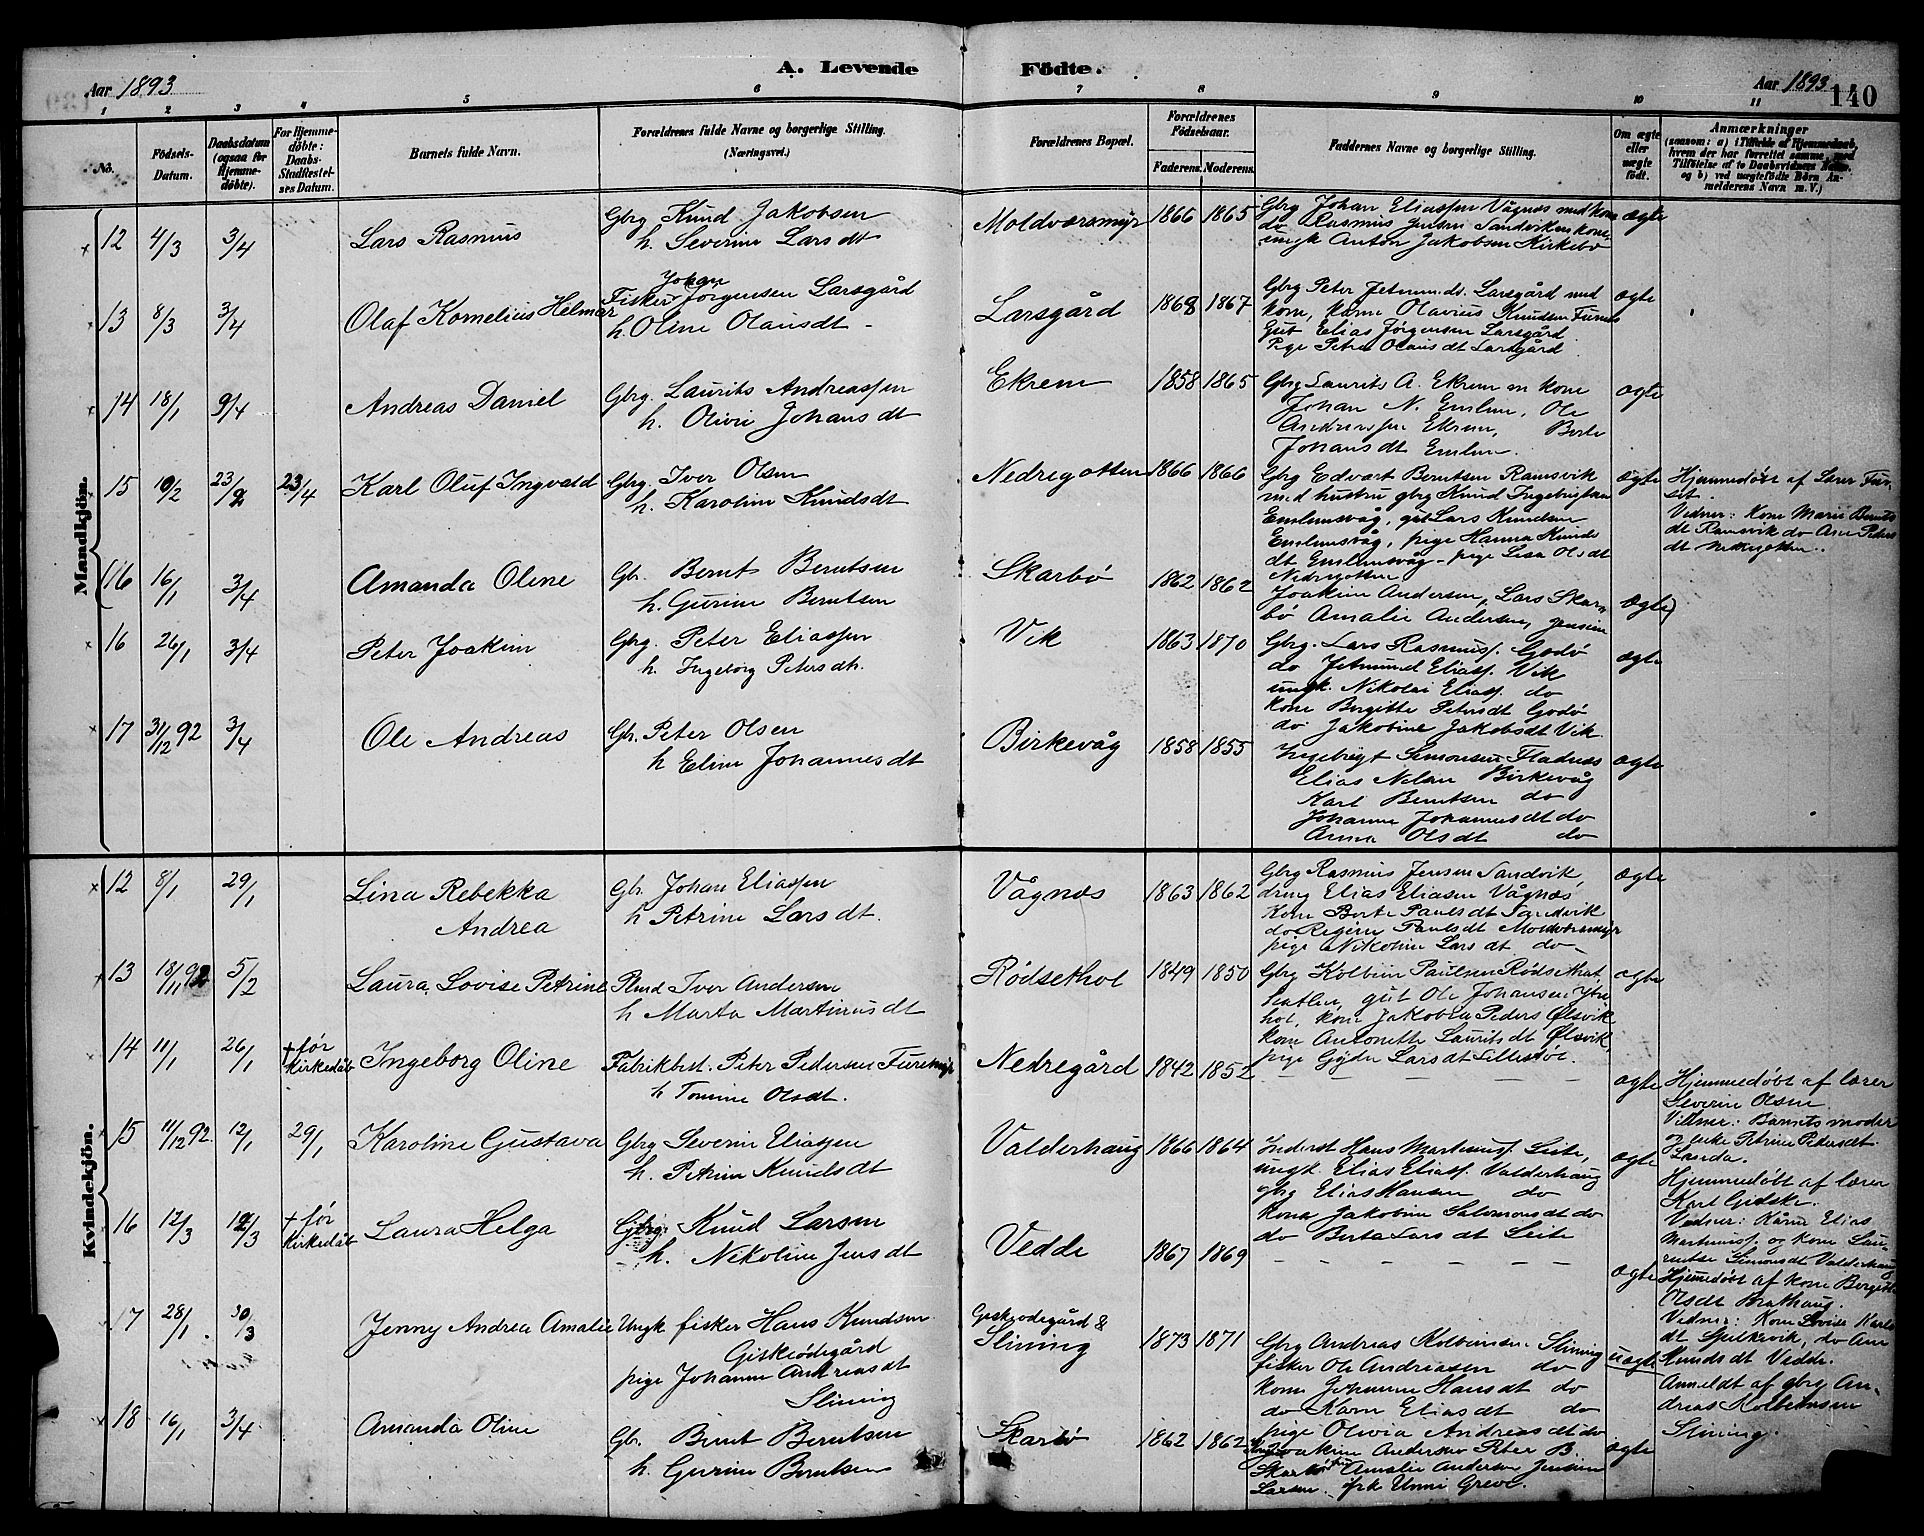 Aar 1893
A. Levende Födte.
Aar 1893
140
1 2 3 4 5 6 7 8 9 10 11
No.
Födsels-Datum.
Daabsdatum (ogsaa for Hjemmedöbte).
For Hjemmedöbte: Daabs-Stadfæstelses Datum.
Barnets fulde Navn.
Forældrenes fulde Navne og borgerlige Stilling. (Næringsvei.)
Forældrenes Bopæl.
Forældrenes Födselsaar.
Faderens. Moderens.
Faddernes Navne og borgerlige Stilling.
Om ægte eller uægte födt.
Anmærkninger
(saasom: a) i Tilfælde af Hjemmedaab, hvem der har forrettet samme, med Tilföielse af to Daabsvidners Navne, og b) ved uægtefödte Börn Anmelderens Navn m. V.)
Mandkjön.
12 4/3 3/4 Lars Rasmus
Gbrg Knud Jakobsen
h. Severine Larsdt
Moldværsmyr 1866 1865
Gbrg Johan Eliassen Vågnes med kone
do Rasmus Jensen Sandviken kone
ungk Anton Jakobsen Kirkebø
ægte
13 8/3 3/4 Olaf Kornelius Helmer
Johan
Fisker Jörgensen Larsgård
h. Oline Olausdt -
Larsgård 1868 1867
Gbrg Peter Jetmundt. Larsgård med
kone, kone Olavius Knudsen Furnes
Gut Elias Jörgensen Larsgård
Pige Petra Olausdt Larsgård
ægte
14 18/1 9/4 Andreas Daniel
Gbrg. Laurits Andreassen
h. Olivi Johansdt
Ekrem 1858 1865
Gbrg Laurits A. Ekrem m kone
Johan N. Emlem, Ole
Andreassen Ekrem, Berte
Johansdt Emlem.
ægte
15 10/2 23/2 23/4 Karl Oluf Ingvald
Gbrg. Iver Olsen
h. Karoline Knudsdt
Nedregotten 1866 1866
Gbrg Edvart Berntsen Ramsvik
med hustru gbrg Knud Ingebrigtsen
Emlemsvåg, gut Lars Knudsen
Emlemsvåg, pige Hanna Knuds
dt Emlemsvåg - pige Lisa Olsdt
Nedregotten
ægte
Hjemmedöbt af Lærer Furset
Vidner: Kone Marie Bernts
dt Ramsvik do Ane Peters
dt Nedregotten.
(16 16/1 3/4 Amanda Oline
Gb. Bernt Berntsen
h. Gurine Berntsen
Skarbö 1862 1862
Joakim Andersen, Lars Skar
bö Amalie Andersen, Jensine
ægte)
16 26/1 3/4 Peter Joakim
Gbrg. Peter Eliassen
h. Ingeborg Petersdt.
Vik 1863 1870
Gbrg. Lars Rasmuss. Godö
do Jetmund Eliass. Vik
ungk. Nikolai Eliass. do
kone Bergitte Petersdt Godö
do Jakobine Jakobsdt Vik
ægte
17 31/12 92 3/4 Ole Andreas
Gb. Peter Olsen
h Eline Johannesdt
Birkevåg 1858 1855
Ingebrigt Simonsen Fladnes
Elias Nelsen Birkevåg
Karl Berntsen do
Johanne Johannesdt do
Anna Olsdt do
ægte
Kvindekjön.
12 8/1 29/1 Lina Rebekka
Andrea
Gb. Johan Eliassen
h Petrine Larsdt.
Vågnes 1863 1862
Gbrg Rasmus Jensen Sandvik
dreng Elias Eliasen Vågnes
Kone Berte Paulsdt Sandvik
do Regine Paulsdt Moldværsmyr
pige Nikoline Larsdt do
ægte
13 18/11 92 5/2 Laura Lovise Petrine
Rmd Iver Andersen
h Marta Martinusdt
Rödsethol 1849 1850
Gbrg Kolbein Paulsen Rödset
gut Ole Johansen Ytre
hol, kone Jakobea Peders Ölsvik
kone Antonette Lauritsdt Ölsvik
pige Gjyda Larsdt Lillestöl.
ægte
14 11/1 26/1 † før kirkedåb Ingeborg Oline
Fabrikbest. Peter Pedersen Furemyr
h Tomine Olsdt.
Nedregård 1842 1852
- - - - -
ægte
Hjemmedöbt af lærer
Severin Olsen.
Vidner: Barnets moder
og enke Petrine Pedersdt
Landa.
15 11/12 92. 12/1 29/1 Karoline Gustava
Gbrg Severin Eliasen
h. Petrine Knudsdt
Valderhaug 1866 1864
Inderst Hans Martinuss. Leite,
ungk. Elias Eliass. Valderhaug
gbrg Elias Hansen do
kona Jakobine Salomonsdt do
do Berta Larsdt Leite
ægte
Hjemmedöbt af lærer
Karl Gidske.
Vidner: Kårm. Elias
Martinuss. og kone Lau-
rentse Simonsdt Valderhaug
16 12/3 12/3 † før kirkedåb Laura Helga
Gbrg. Knud Larsen
h. Nikoline Jensdt
Vedde 1867 1869
- - - - -
ægte
Hjemmedöbt af kone Bergitte
Olsdt Brathaug.
Vidner: Kone Lovise Karls
dt Spilkevik, do Ane
Knudsdt Vedde.
17 28/1 30/3 Jenny Andrea Amalie
Ungk fisker Hans Knudsen
Giskeödegård
pige Johanne Andreasdt
Slining
Giskeødegård &
Slining 1873 1871
Gbrg Andreas Kolbeinsen Slining
fisker Ole Andreasen do
kone Johanne Hansdt do
do Karn Eliasdt do
pige Olivia Andreasdt do
uægte
Anmeldt af gbrg An-
dreas Kolbeinsen
Slining.
18 16/1 3/4 Amanda Oline
Gb. Bernt Berntsen
h. Gurine Berntsen
Skarbö 1862 1862
Joakim Andersen Peter B.
Skarbö Amalie Andersen Jensine
Larsen. frk Unni Greve.
ægte